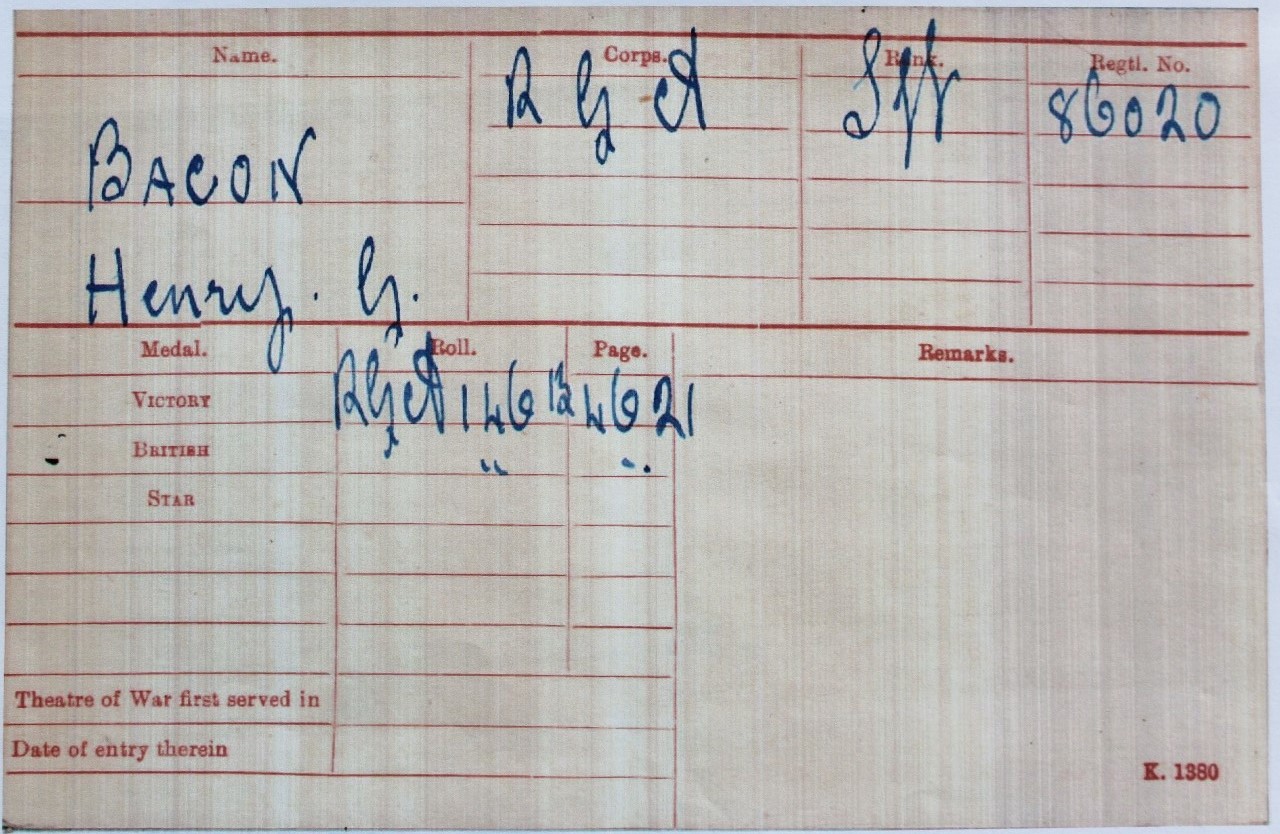 Name. Corps. Rank. Regtl. No.
R G A 86020
BACON
Henry. G.
Medal. Roll. Page. Remarks.
VICTORY RGA 146 B 4621
BRITISH " "
STAR
Theatre of War first served in
Date of entry therein
K. 1380